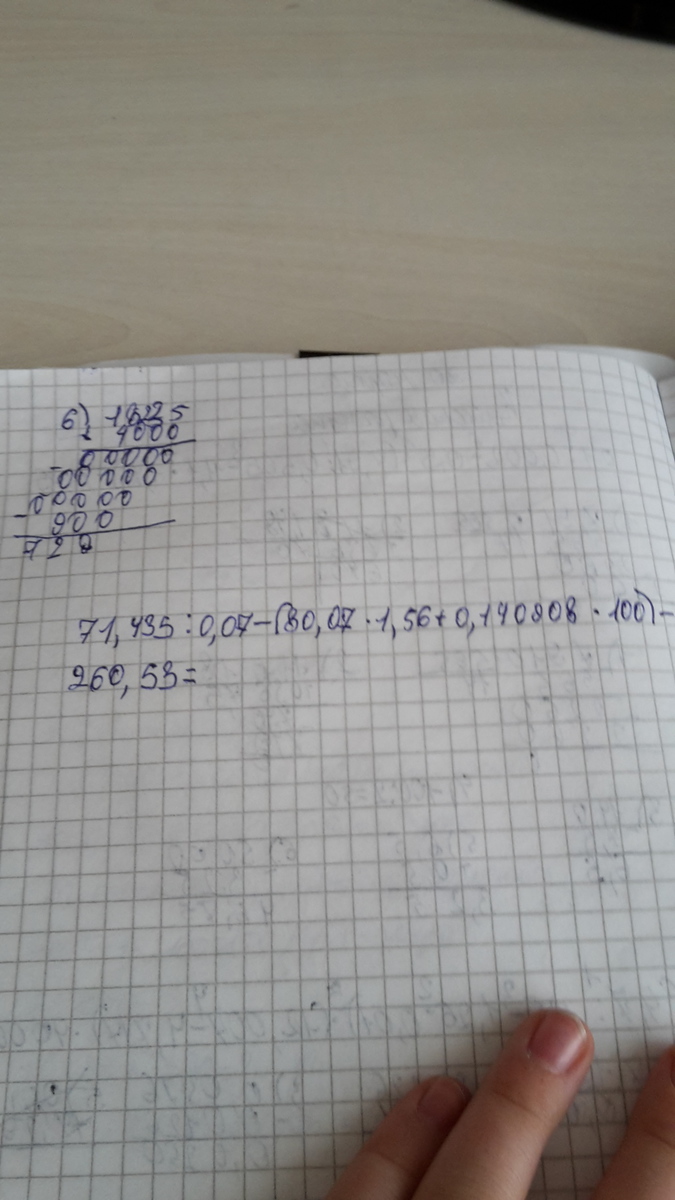 6) 18225
4000
00000
-00000
-00000
900
728
71,435:0,07-(80,07·1,56+0,140808·100)-
260,53=